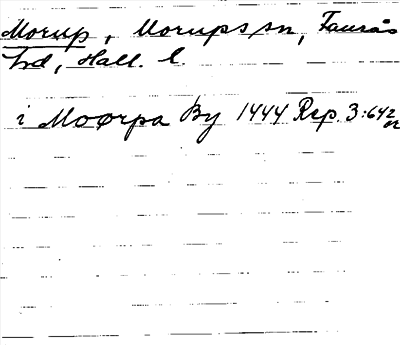 Morup, Morups sn, Faurås
hd, Hall. l.
i Moørpa By 1444 Rep. 3:642